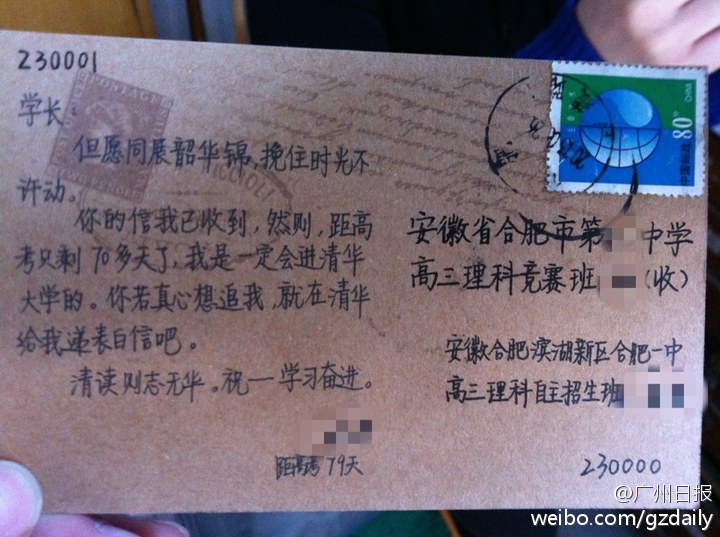 230001
学长:
但愿同展韶华锦,挽住时光不
许动。
你的信我已收到,然则,距高
考只剩70多天了,我是一定会进清华
大学的。你若真心想追我,就在清华
给我递表白信吧。
清读则志无华。祝一学习奋进。
距高考79天
POSTAGE
RICCIOLI
80分
中国邮政
CHINA
安徽省合肥市第 中学
高三理科竞赛班 (收)
安徽合肥滨湖新区合肥一中
高三理科自主招生班
230000
@广州日报
weibo.com/gzdaily